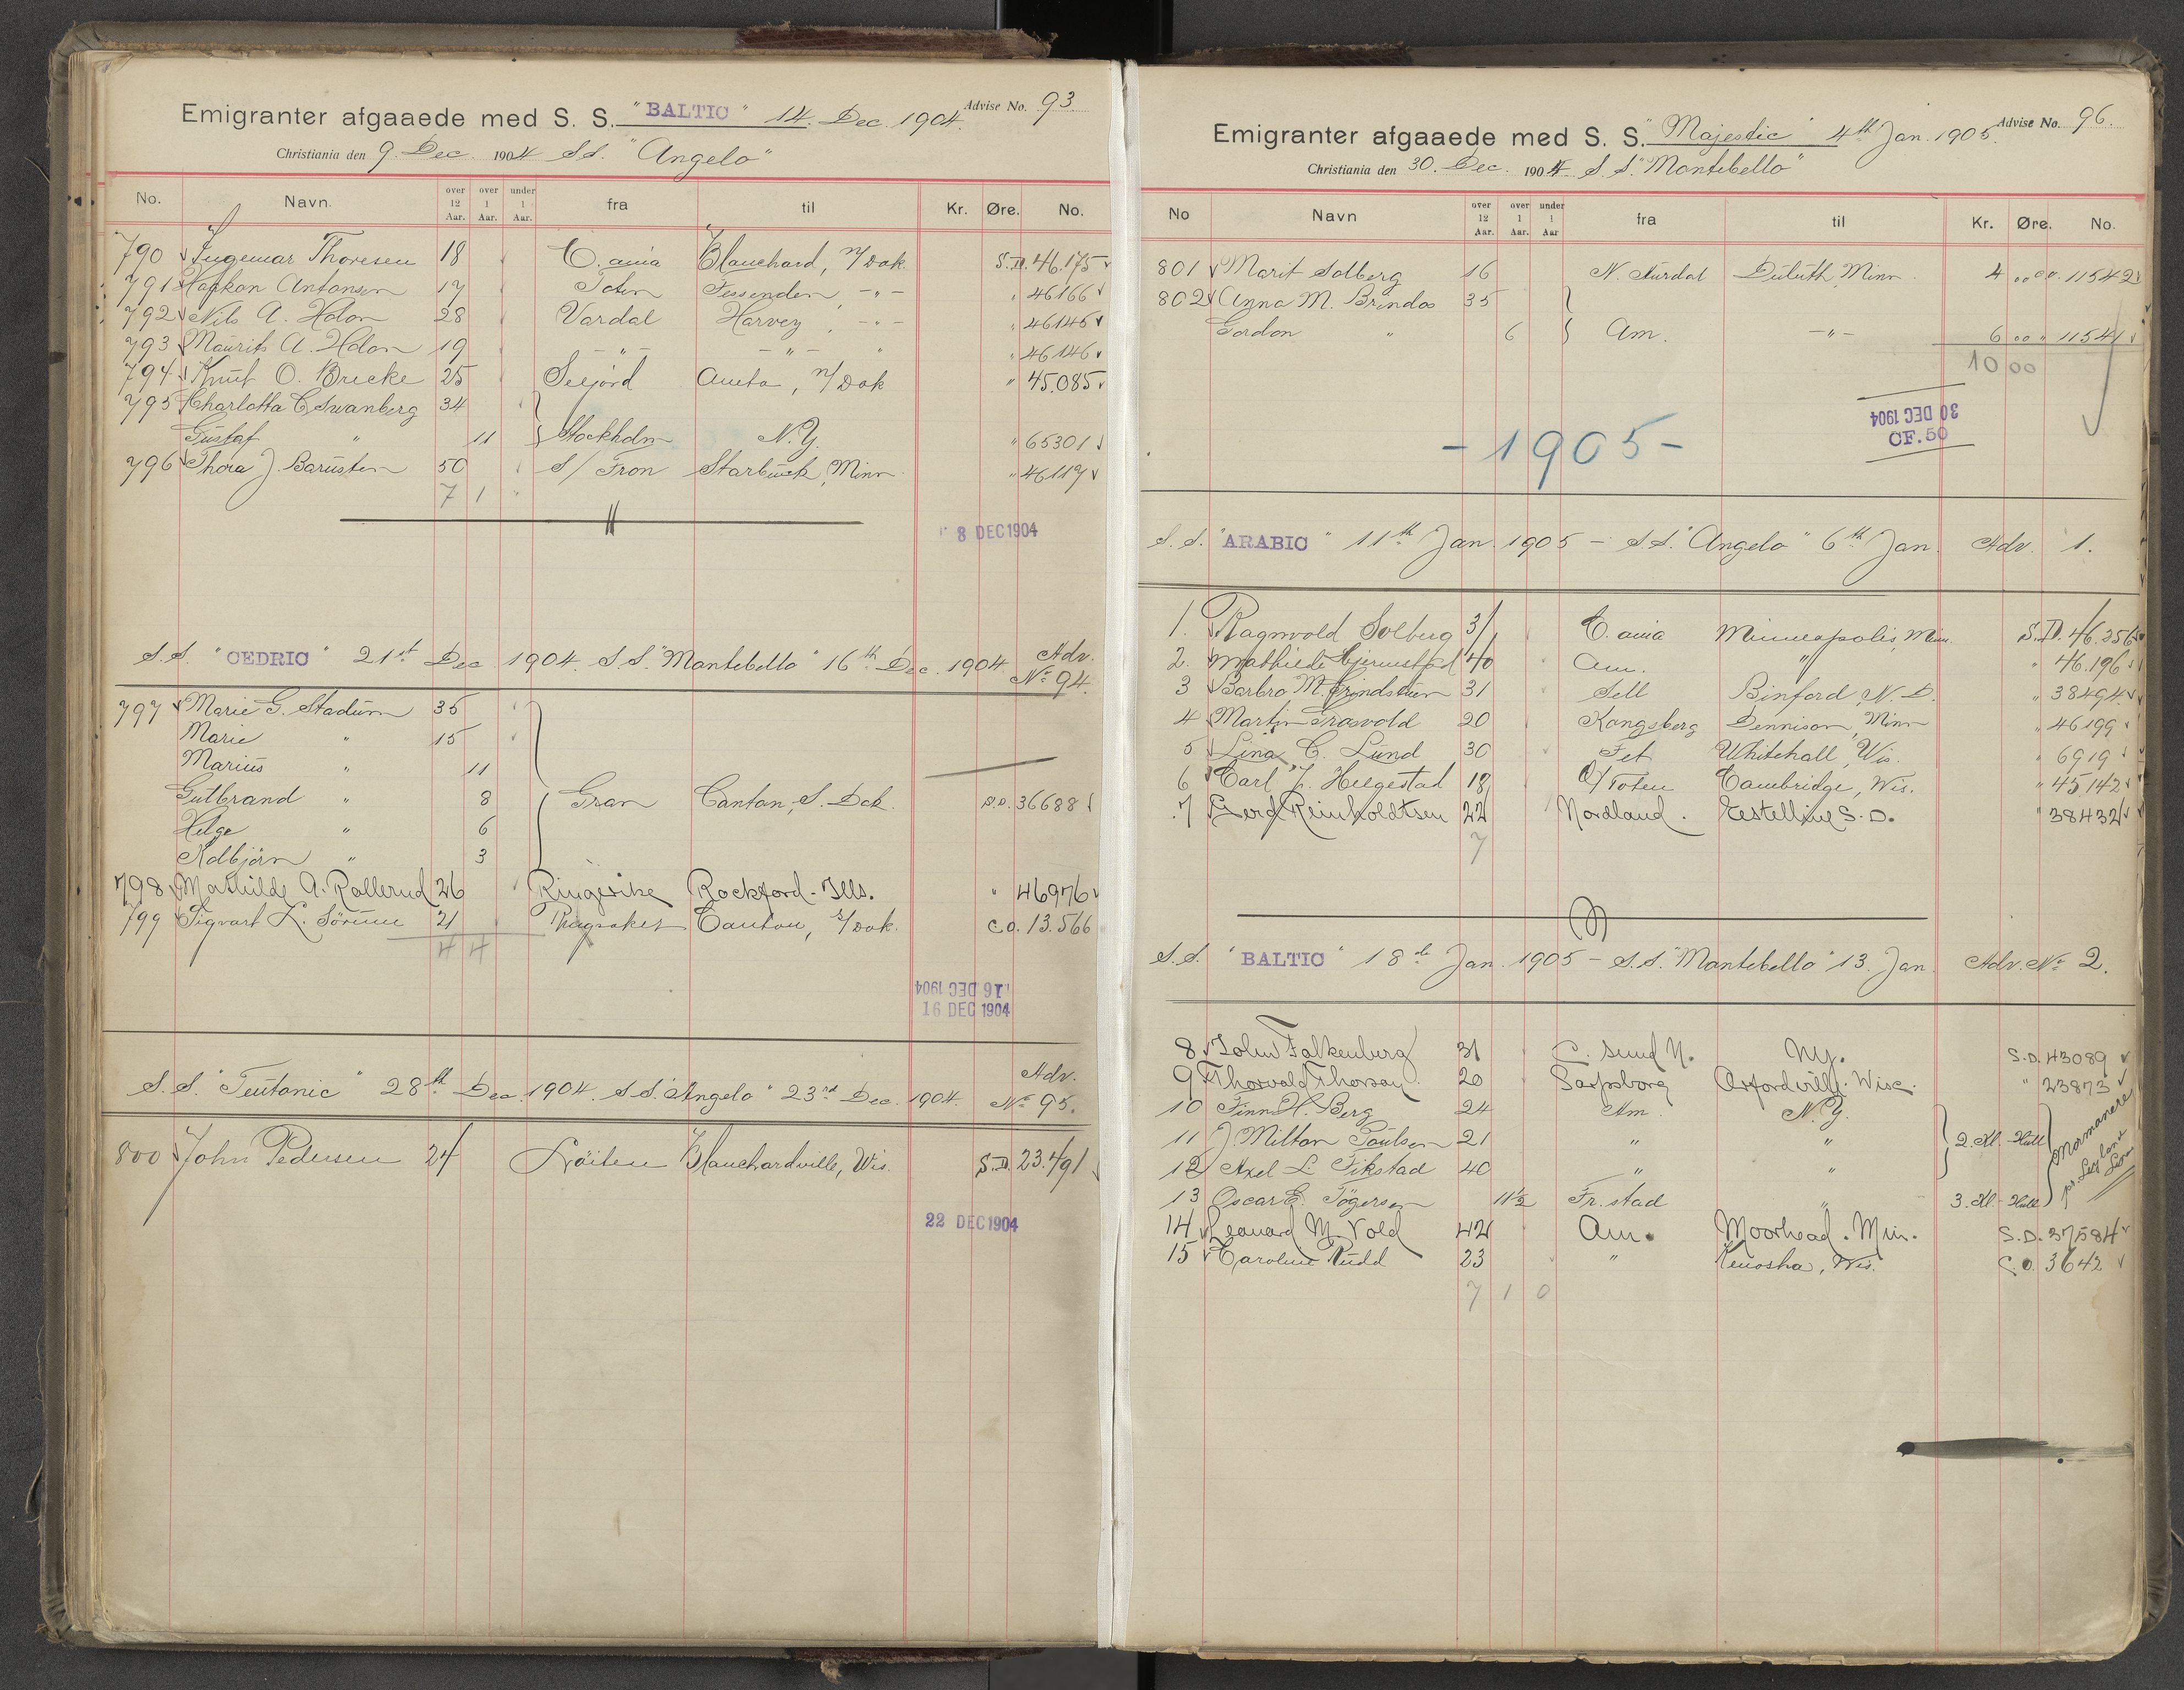 Emigranter afgaaede med S. S. "BALTIC" 14. Dec. 1904. Advise No. 93
Christiania den 9. Dec. 1904 S.S. "Angelo"
No. Navn. over 12 Aar. over 1 Aar. under 1 Aar. fra til Kr. Øre. No.
790 Ingemar Thoresen 18 C. ania Blanchard, N/Dak. S.D. 46.175
791 Haakon Antonsen 17 Toten Fessenden, -"- " 46166
792 Nils A. Holon 28 Vardal Harvey, -"- " 46145
793 Maurits A. Holon 19 -"- -"- " " 46146
794 Knut O. Bricke 25 Seljord Aneta, N/Dak " 45.085
795 Charlotta C. Swanberg 34
Gustaf " 11 Stockholm N.Y. " 65301
796 Thora J. Barusten 50 S/Fron Starbuck, Minn " 46117
7 1 "
8 DEC 1904
S.S. "CEDRIC" 21st Dec 1904. S.S. "Montebello" 16th Dec. 1904 Adv. No 94.
797 Marie G. Stadum 35
Marie " 15
Marius " 11
Gulbrand " 8 Gran Canton, S. Dak. S.D. 36688
Helge " 6
Kolbjörn " 3
798 Mathilde A. Rallerud 26 Ringerike Rockford - Ills. " 46976
799 Sigvart L. Sörum 21 Ringsaker Canton, S/Dak. C.O. 13.566
4 4
16 DEC 1904
16 DEC 1904
S.S. "Teutonic" 28th Dec. 1904. S.S. "Angelo" 23rd Dec. 1904. Adv. No 95.
800 John Pedersen 24 Löiten Blanchardville, Wis. S.D. 23.491
22 DEC 1904
Emigranter afgaaede med S. S. "Majestic" 4th Jan. 1905. Advise No. 96.
Christiania den 30. Dec. 1904 S.S. "Montebello"
No Navn over 12 Aar. over 1 Aar. under 1 Aar fra til Kr. Øre. No.
801 Marit Solberg 16 N. Aurdal Duluth, Minn 4 00 C.O. 11542
802 Anna M. Brindos 35
Gordon " 6 Am. -"- 6 00 " 11541
10 00
30 DEC 1904
CF. 50
- 1905 -
S.S. "ARABIC" 11th Jan. 1905 - S.S. "Angelo" 6th Jan. Adv. 1.
1. Ragnvald Solberg 31 C. ania Minneapolis, Minn. S.D. 46.256
2. Mathilde Gjermstad 40 Am. " " 46.196
3 Barbro M. Grindstuen 31 Sell Binford, N.D. " 38494
4 Martin Grasvold 20 Kongsberg Dennison, Minn " 46199
5 Lina C. Lund 30 Fet Whitehall, Wis. " 6919
6 Carl J. Helgestad 18 O/Toten Cambridge, Wis. " 45,142
7 Gerd Reinholdtsen 22 Nordland. Estelline S.D. " 38432
7
S.S. "BALTIC" 18de Jan. 1905 - S.S. "Montebello" 13. Jan. Adv. No 2.
8 John Falkenberg 31 C. sund N. N.Y. S.D. 43089
9 Thorvald Thorsay. 20 Sarpsborg Orfordville. Wisc. " 23873
10 Finn H. Berg 24 Am. N.Y.
11 J. Milton Poulsen 21 " " 2. Kl. - Hull Mormonere
12 Axel L. Fikstad 40 " "
13 Oscar E. Tögersen 11½ Fr.stad " 3. Kl. - Hull
14 Leonard M. Vold 42 Am. Moorhead. Min. S.D. 37584
15 Caroline Rudd 23 " Kenosha, Wis. C.O. 3642
7 1 0